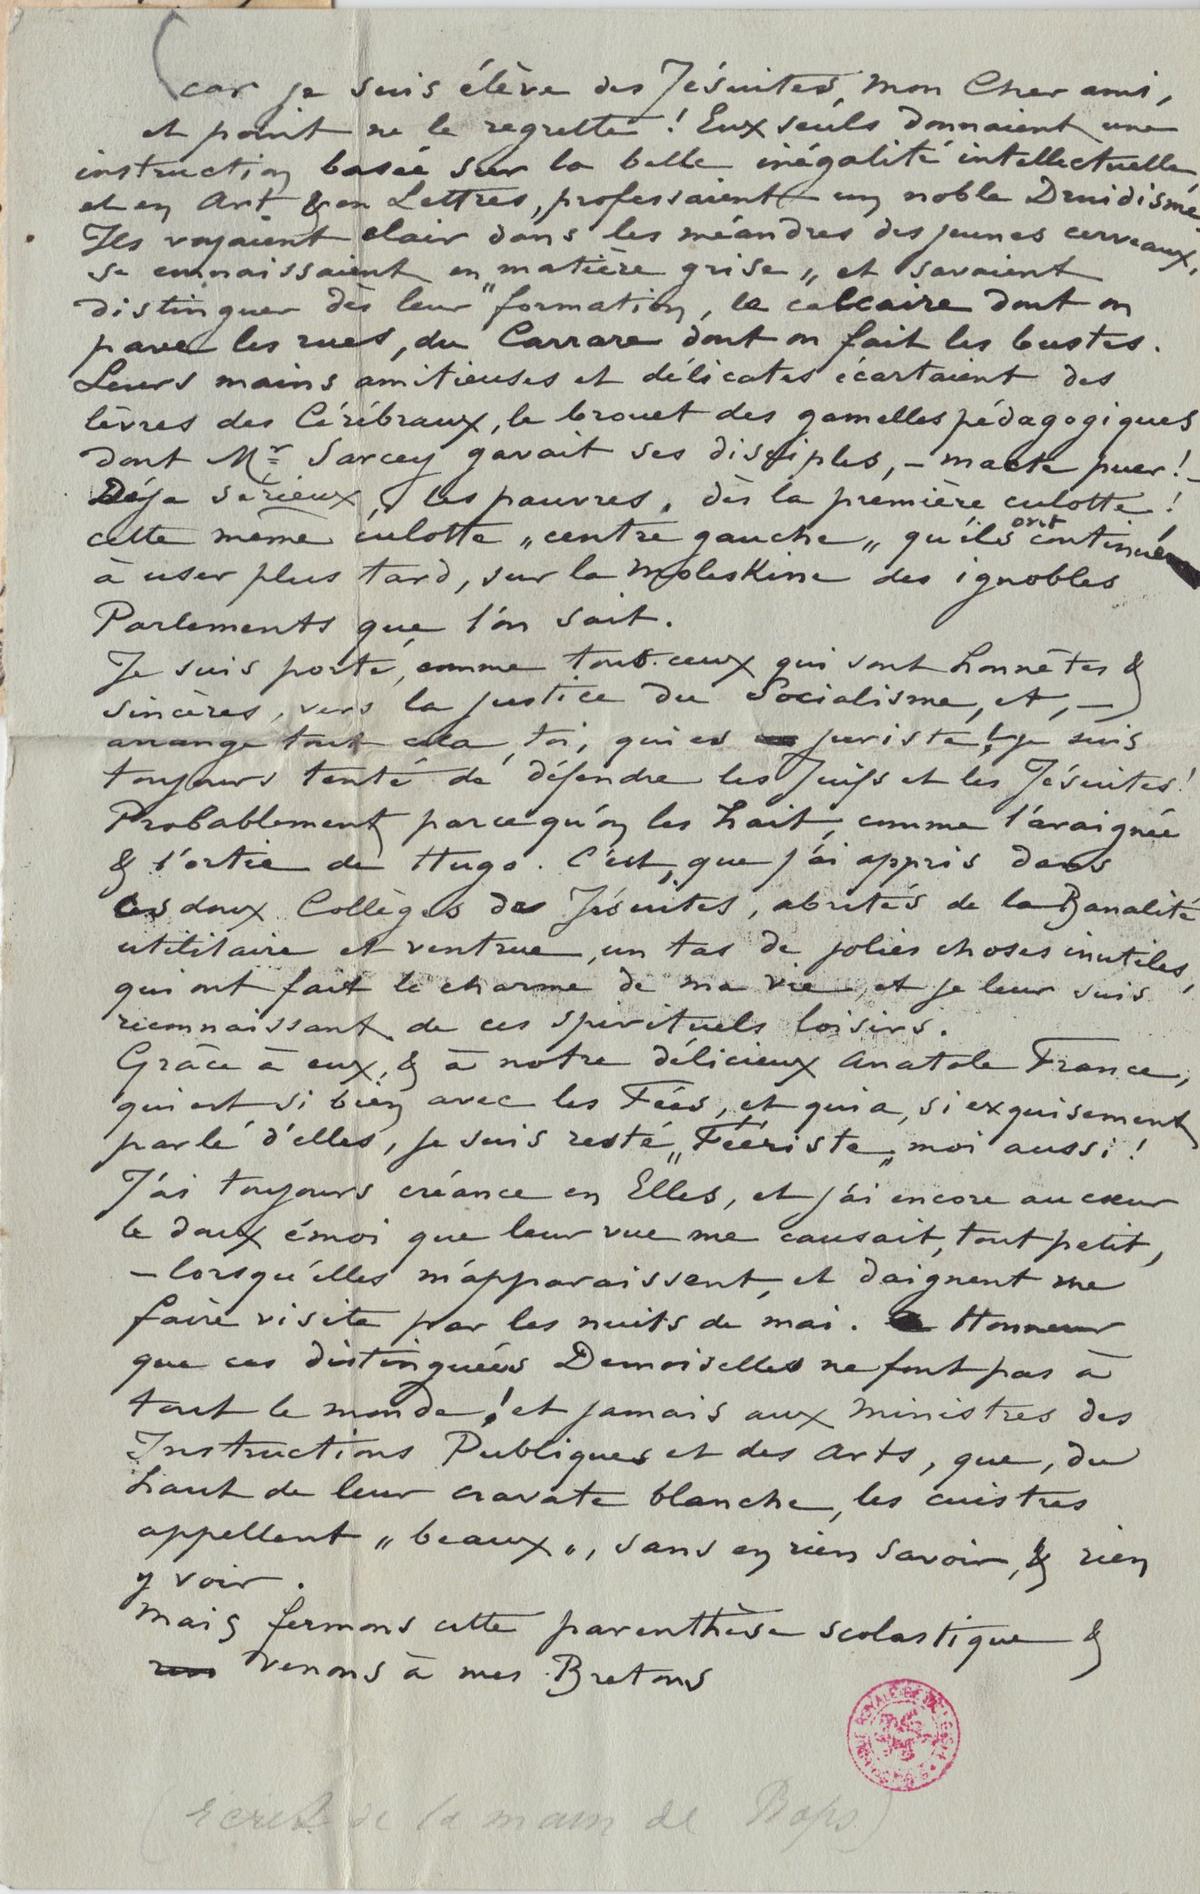 (car je suis élève des Jésuites, mon Cher ami,
et point ne le regrette ! Eux seuls donnaient une
instruction basée sur la belle inégalité intellectuelle,
et en Art & en Lettres, professaient un noble Druidisme
Ils voyaient clair dans les méandres des jeunes cerveaux,
se connaissaient en „matière grise„ et savaient
distinguer dès leur formation, le calcaire dont on
pave les rues, du Carrare dont on fait les bustes.
Leurs mains amitieuses et délicates écartaient des
lèvres des Cérébraux, le brouet des gamelles pédagogiques
dont Mr Sarcey gavait ses disciples, – macte puer ! –
Déja sérieux, les pauvres, dès la première culotte !
cette même culotte „centre gauche„ qu'ils ont continué
à user plus tard, sur la Moleskine des ignobles
Parlements que l'on sait.
Je suis porté, comme tous ceux qui sont honnêtes &
sincères, vers la justice du Socialisme, et, –
arrange tout cela, toi, qui es juriste ! je suis
toujours tenté de défendre les Juifs et les Jésuites !
Probablement parce qu'on les hait, comme l'araignée
& l'ortie de Hugo. C'est, que j'ai appris dans
ces doux Collèges des Jésuites, abrités de la Banalité
utilitaire et ventrue, un tas de jolies choses inutiles,
qui ont fait le charme de ma vie, et je leur suis
reconnaissant de ces spirituels loisirs.
Grâce à eux, & à notre délicieux Anatole France,
qui est si bien avec les Fées, et qui a, si exquisement
parlé d'elles, je suis resté „Féériste„ moi aussi !
J'ai toujours créance en Elles, et j'ai encore au cœur
le doux émoi que leur vue me causait, tout petit,
– lorsqu'elles m'apparaissent, et daignent me
faire visite par les nuits de mai. Honneur
que ces distinguées Demoiselles ne font pas à
tout le monde ! et jamais aux Ministres des
Instructions Publiques et des Arts, que, du
haut de leur cravate blanche, les cuistres
appellent „beaux„, sans en rien savoir, & rien
y voir.
Mais fermons cette parenthèse scolastique &
venons à mes Bretons
(écrit de la main de Rops)